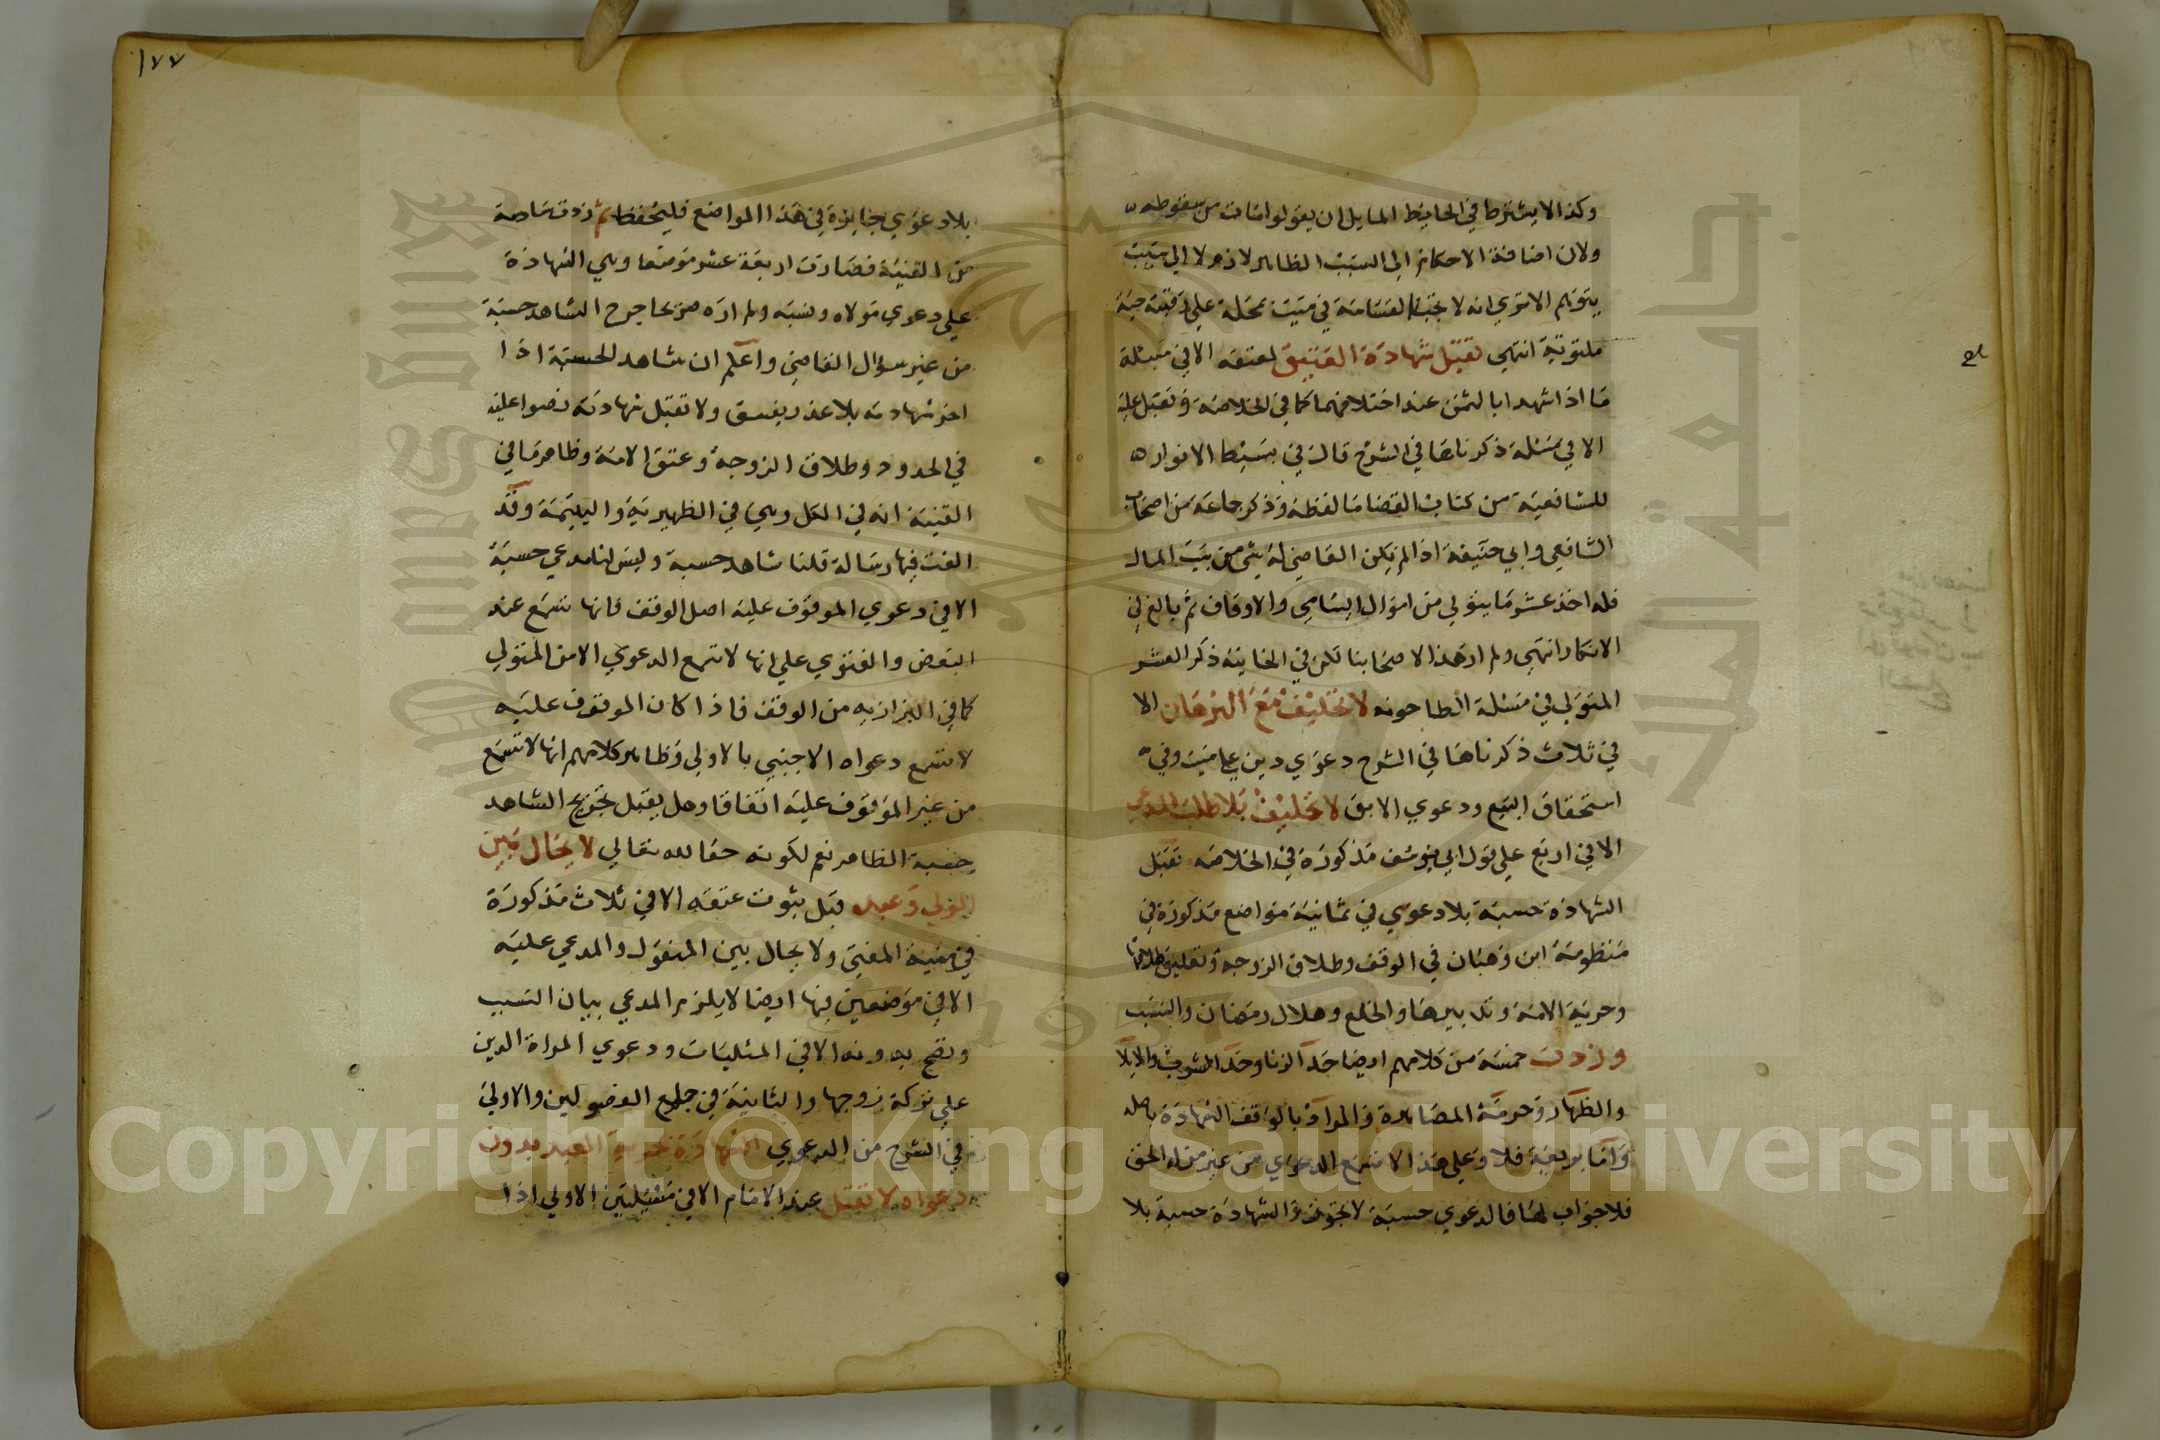 وكذا لا يشترط في الحايط المايل ان يقولوا مات من سقوطه
ولان اضافة الاحكام الي السبب الظاهر لازم لا الي سبب
يتوهم الا تري انه لا تجب القسامة في ميت بمحلة علي رقبته حية
ملتوية انتهي تقبل شهادة العتيق لمعتقه الا في مسئلة
ما اذا شهد ابالثمن عند اختلافهما كما في الخلاصة وتقبل عليه
الا في مسئلة ذكرناها في الشرح قال في بسيط الانوار
للشافعية من كتاب القضا ما لفظه وذكر جماعة من اصحاب
الشافعي وابي حنيفة اذا لم يكن القاضي له شي من بيت المال
فله اخذ عشر ما يتولي من اموال اليتامي والاوقاف ثم بالغ في
الانكار انتهي ولم ار هذا لاصحابنا لكن في الخانية ذكر العشر
المتولي في مسئلة الطاحونه لا تحليف مع البرهان الا
في ثلاث ذكرناها في الشرح دعوي دين علي ميت وفي
استحقاق المبيع ودعوي الابق لا تحليف بلا طلب المدعي
الا في اربع علي قول ابي يوسف مذكورة في الخلاصة تقبل
الشهادة حسبة بلا دعوي في ثمانية مواضع مذكورة في
منظومة ابن وهبان في الوقف وطلاق الزوجة وتعليق طلاقها
وحرية الامة وتدبيرها والخلع وهلال رمضان والنسب
وزدت خمسة من كلامهم ايضا حد الزنا وحد الشرب والايلا
والظهار وحرمة المصاهرة والمراد بالوقف الشهادة باصله
واما بريعة فلا وعلي هذا لا تسمع الدعوي من غير من له الحق
فلا جواب لها فالدعوي حسبة لا تجوز والشهادة حسبة بلا
١٧٧
بلا دعوي جايزة في هذه المواضع فليحفظ ثم زدت سادسة
من القنية فصارت اربعة عشر موضعا وهي الشهادة
علي دعوي مولاه ونسبه ولم اره صريحا جرح الشاهد حسبة
من غير سؤال القاضي واعلم ان شاهد الحسبة اذا
اخر شهادته بلا عذر يفسق ولا تقبل شهادته نصوا عليه
في الحدود وطلاق الزوجة وعتق الامة وظاهر ما في
القنية انه في الكل وهي في الظهيرية واليتيمة وقد
الفت فيها رسالة قلنا شاهد حسبة وليس لنا مدعي حسبة
الا في دعوي الموقوف عليه اصل الوقف فانها تسمع عند
البعض والفتوي علي انها لا تسمع الدعوي الا من المتولي
كما في البزازيه من الوقف فاذا كان الموقوف عليه
لا تسمع دعواه الاجنبي بالاولي وظاهر كلامهم انها لا تسمع
من غير الموقوف عليه اتفاقا وهل يقبل تجريح الشاهد
حسبة الظاهر نعم لكونه حقا لله تعالي لا يحال بين
المولي وعبده قبل ثبوت عتقه الا في ثلاث مذكورة
في منية المفتي ولا يحال بين المنقول والمدعي عليه
الا في موضعين منها ايضا لا يلزم المدعي ببيان السبب
وتصح بدونه الا في المثليات ودعوي المراة الدين
علي تركة زوجها والثانية في جامع الفصولين والاولي
في الشرح من الدعوي الشهادة بحرية العبد بدون
دعواه لا تقبل عند الامام الا في مسئلتين الاولي اذا
Copyright © King Saud University